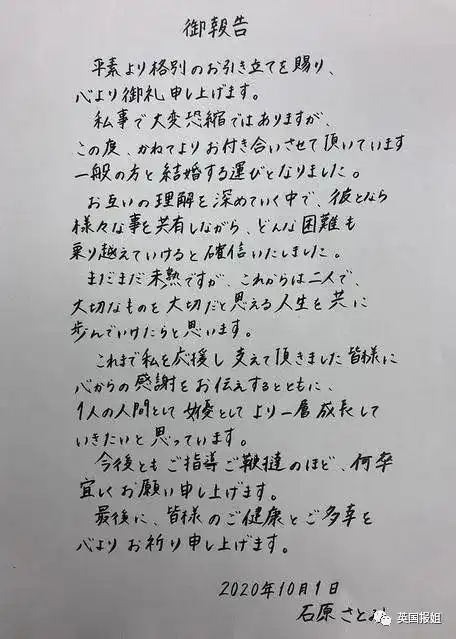 御報告
平素より格別のお引き立てを賜り、
心より御礼申し上げます。
私事で大変恐縮ではありますが、
この度、かねてよりお付き合いさせて頂いています
一般の方と結婚する運びとなりました。
お互いの理解を深めていく中で、彼となら
様々な事を共有しながら、どんな困難も
乗り越えていけると確信いたしました。
まだまだ未熟ですが、これからは二人で、
大切なものを大切だと思える人生を共に
歩んでいけたらと思います。
これまで私を応援し支えて頂きました皆様に
心からの感謝をお伝えするとともに、
1人の人間として女優としてより一層成長して
いきたいと思っています。
今後ともご指導ご鞭撻のほど、何卒
宜しくお願い申し上げます。
最後に、皆様のご健康とご多幸を
心よりお祈り申し上げます。
2020年10月1日
石原さとみ
英国报姐